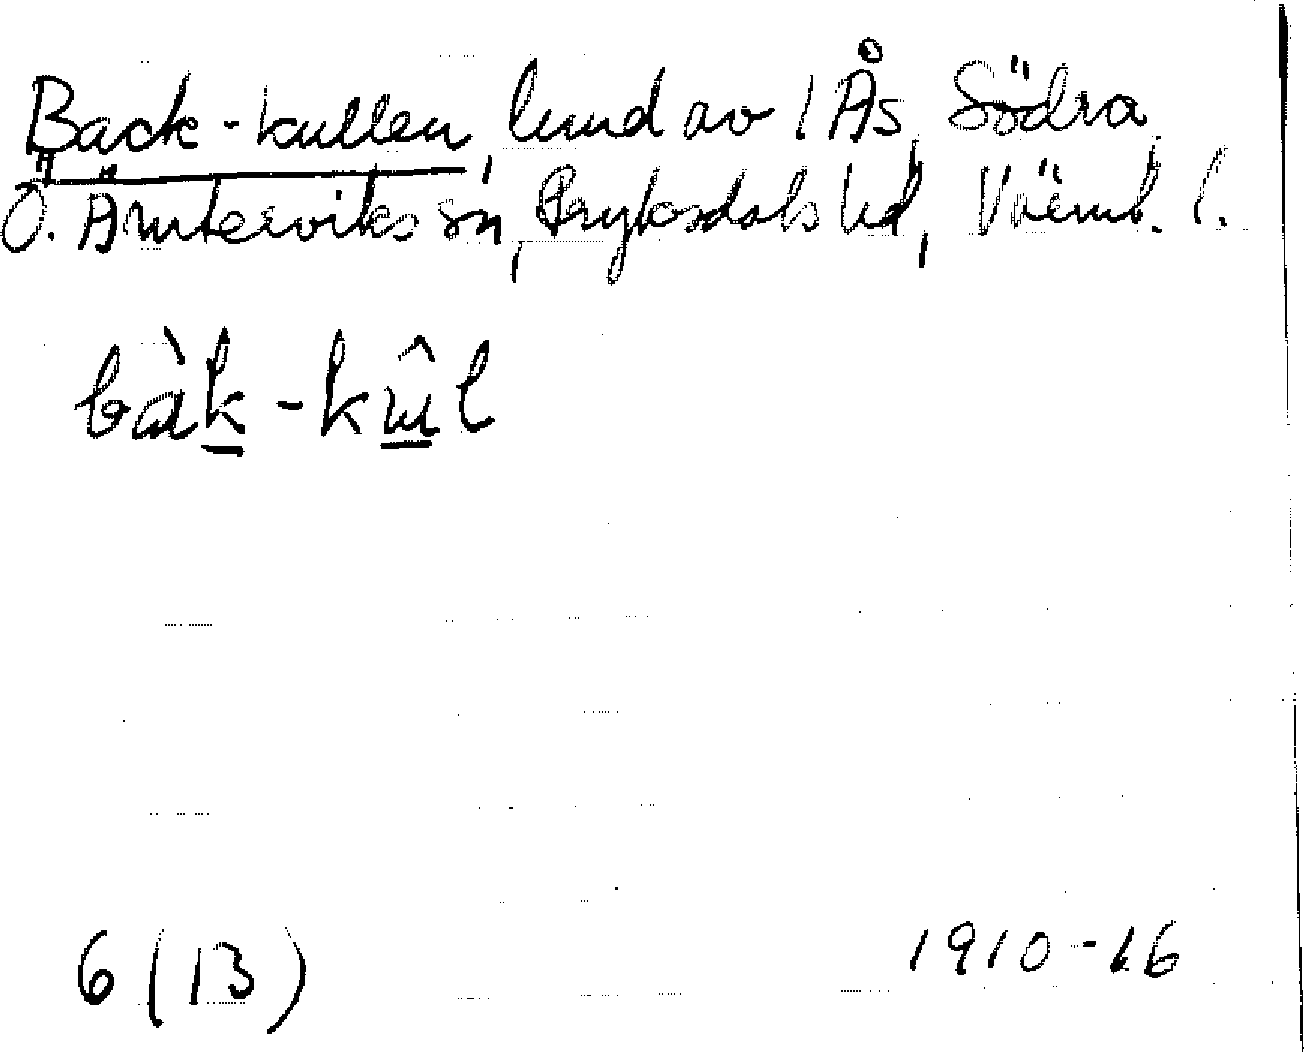 Back-kullen, lund av 1 Ås, Södra
Ö. Ämterviks sn, Fryksdals hd, Värml. l.
bàk-kûl
6 (13)
1910-16